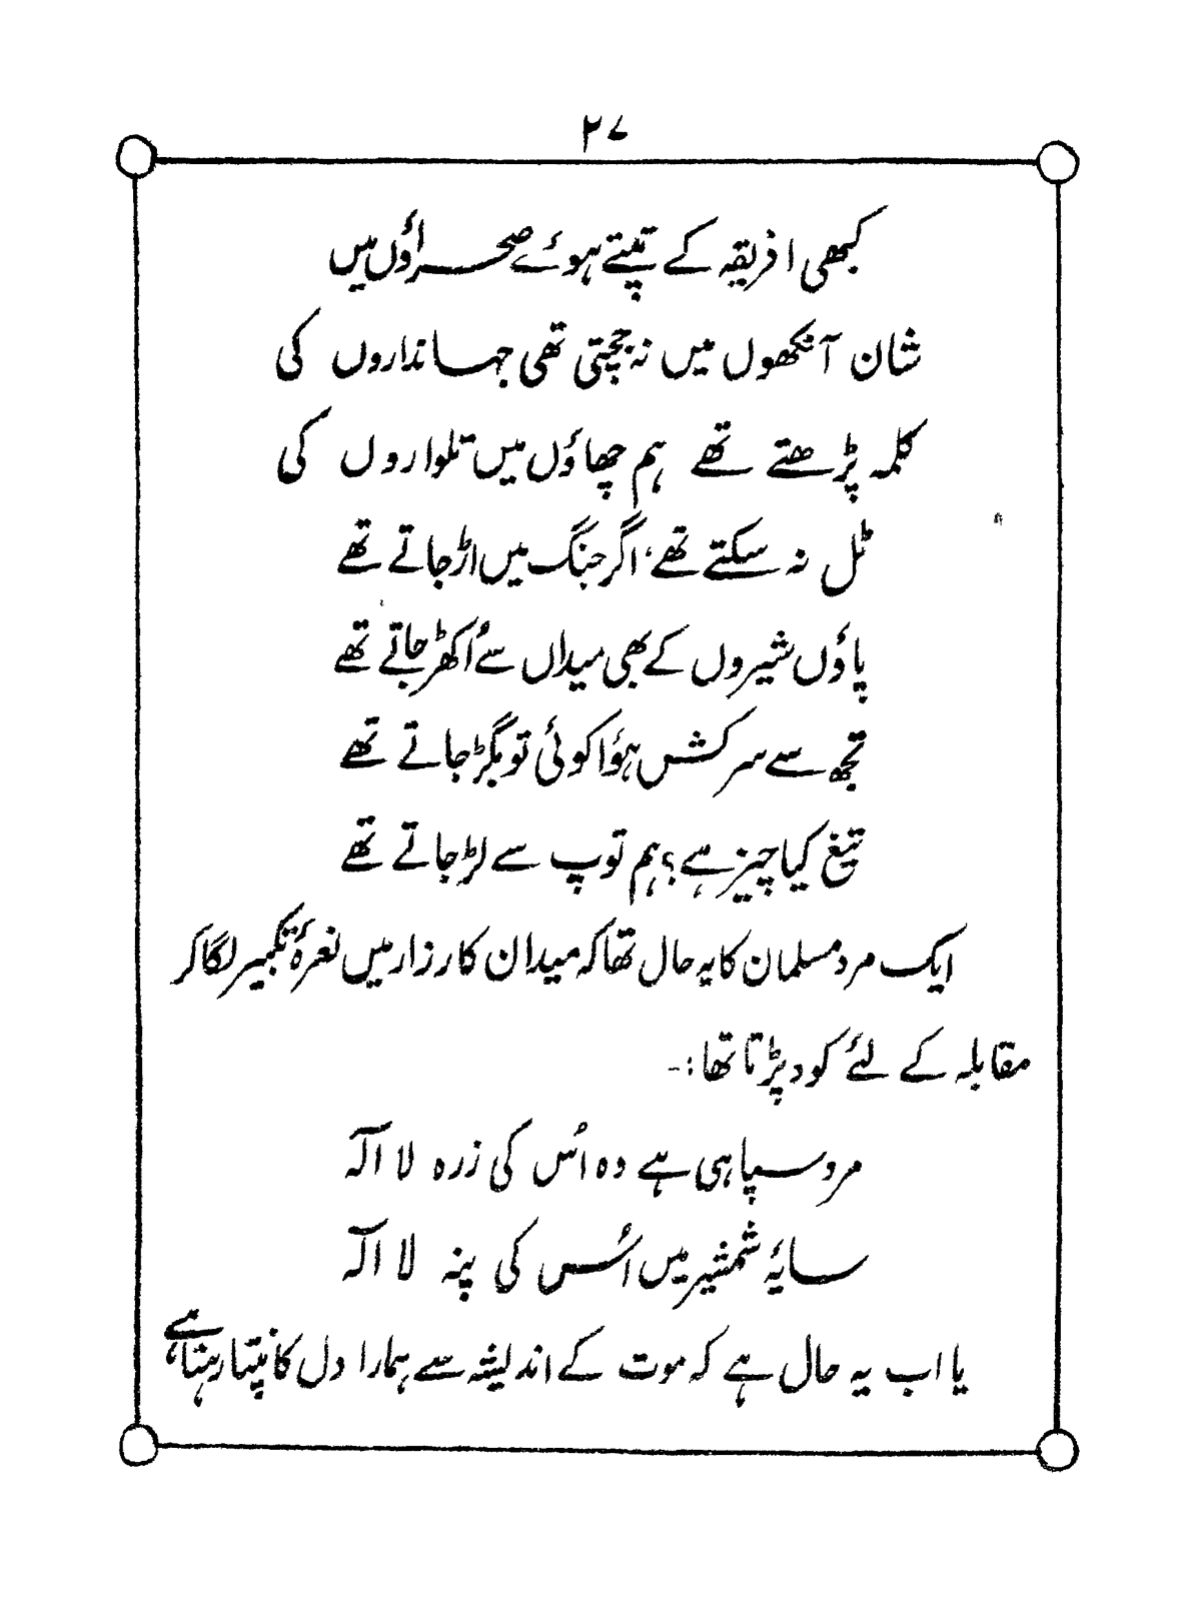 ۲۷
کبھی افریقہ کے تپتے ہوئے صحراؤں میں
شان آنکھوں میں نہ جچتی تھی جہانداروں کی
کلمہ پڑھتے تھے ہم چھاؤں میں تلواروں کی
ٹل نہ سکتے تھے، اگر جنگ میں اڑ جاتے تھے
پاؤں شیروں کے بھی میداں سے اُکھڑ جاتے تھے
تجھ سے سرکش ہؤا کوئی تو بگڑ جاتے تھے
تیغ کیا چیز ہے؟ ہم توپ سے لڑ جاتے تھے
ایک مرد مسلمان کا یہ حال تھا کہ میدان کارزار میں نعرۂ تکبیر لگا کر
مقابلہ کے لئے کود پڑتا تھا :-
مرد سپاہی ہے وہ اُس کی زرہ لا الٰہ
سایۂ شمشیر میں اُس کی پنہ لا الٰہ
یا اب یہ حال ہے کہ موت کے اندیشہ سے ہمارا دل کانپتا رہتا ہے،